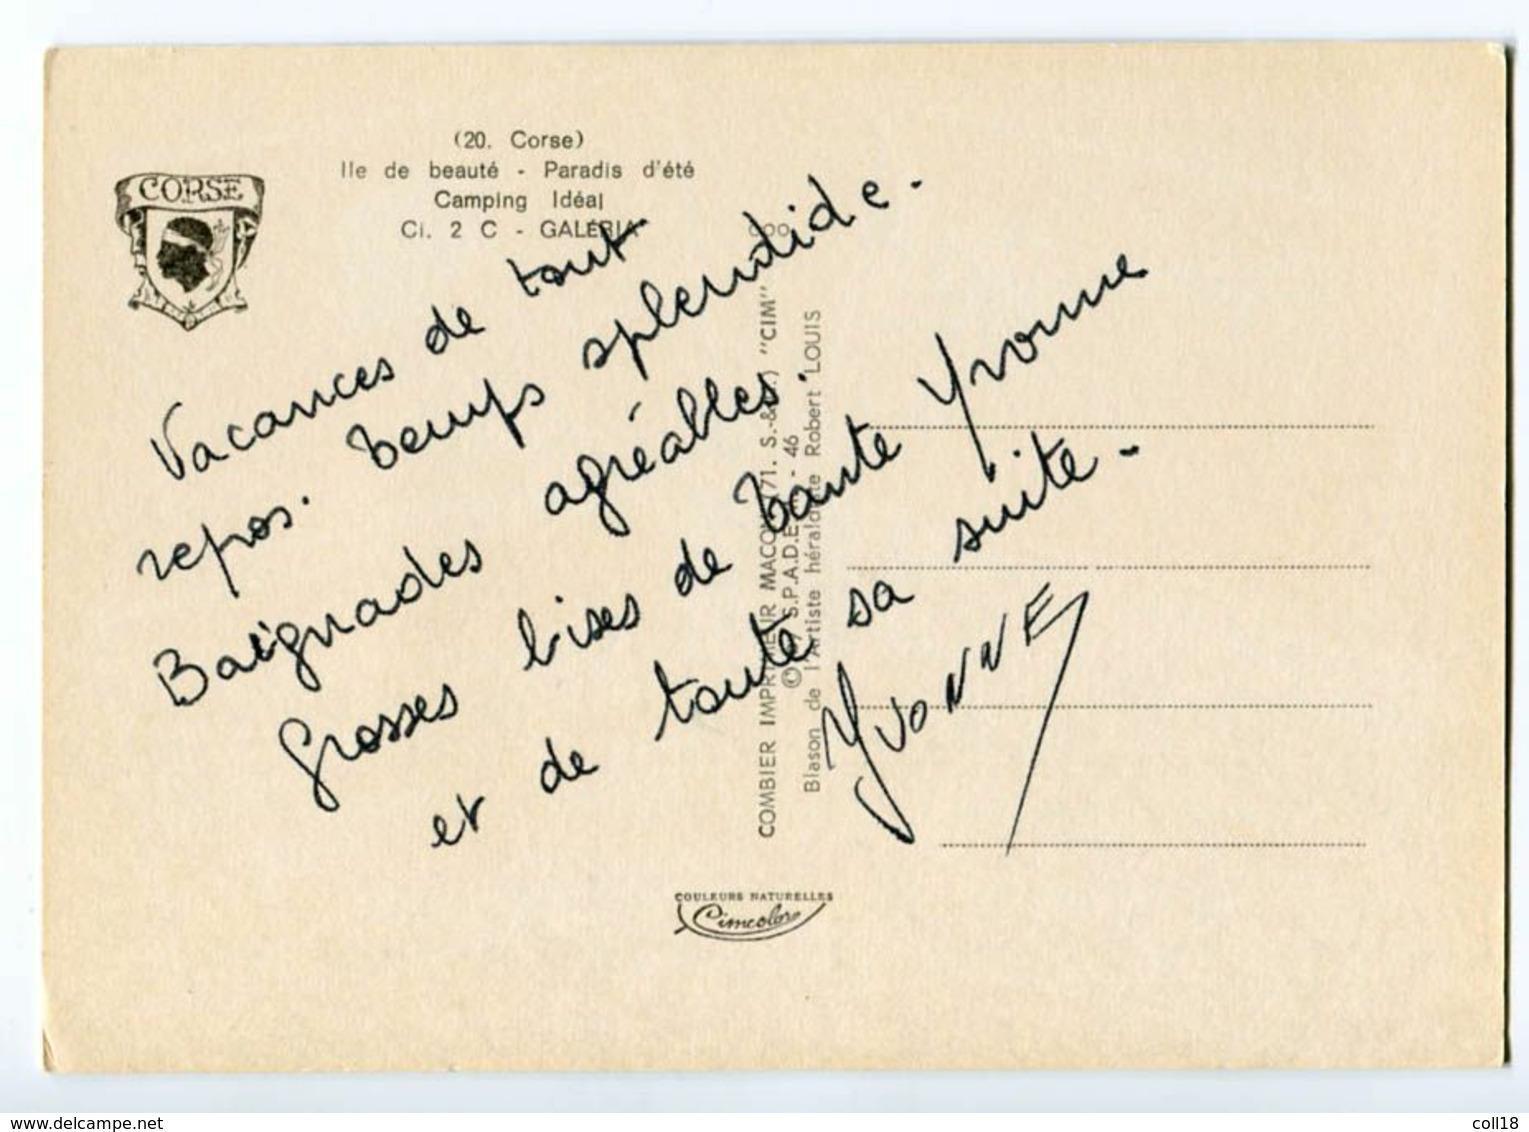 (20. Corse)
Ile de beauté - Paradis d'été
Camping Idéal
Ci. 2 C - GALÉRIA
CORSE
Vacances de tout
repos. temps splendide.
Baignades agréables.
Grosses bises de tante Yvonne
et de toute sa suite.
YVONNE
COMBIER IMPRIMEUR MACON (71. S.-& L.) "CIM"
© S.P.A.D.E.M. - 46
Blason de l'Artiste héraldiste Robert LOUIS
COULEURS NATURELLES
Cimcolor
(c) www.delcampe.net
coll18